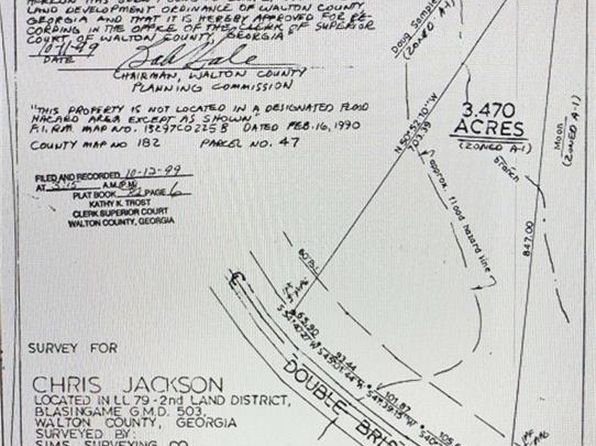 LAND DEVELOPMENT ORDINANCE OF WALTON COUNTY
GEORGIA AND THAT IT IS HEREBY APPROVED FOR RE-
CORDING IN THE OFFICE OF THE CLERK OF SUPERIOR
COURT OF WALTON COUNTY, GEORGIA
10-11-99
DATE
CHAIRMAN, WALTON COUNTY
PLANNING COMMISSION
"THIS PROPERTY IS NOT LOCATED IN A DESIGNATED FLOOD
HAZARD AREA EXCEPT AS SHOWN"
F.I.R.M. MAP NO. 13297C0225B DATED FEB. 16, 1990
COUNTY MAP NO 182 PARCEL NO. 47
FILED AND RECORDED 10-12-99
AT 3:15 A.M./P.M.
PLAT BOOK 82 PAGE 6
KATHY K. TROST
CLERK SUPERIOR COURT
WALTON COUNTY, GEORGIA
SURVEY FOR
CHRIS JACKSON
LOCATED IN LL 79 - 2nd LAND DISTRICT,
BLASINGAME G.M.D. 503,
WALTON COUNTY, GEORGIA
SURVEYED BY:
SIMS SURVEYING CO.
Doug
(ZONED A-1)
3.470
ACRES
(ZONED A-1)
Moon
(ZONED A-1)
703.39
branch
approx. flood hazard line
847.00
65.90
93.44
101.87
DOUBLE